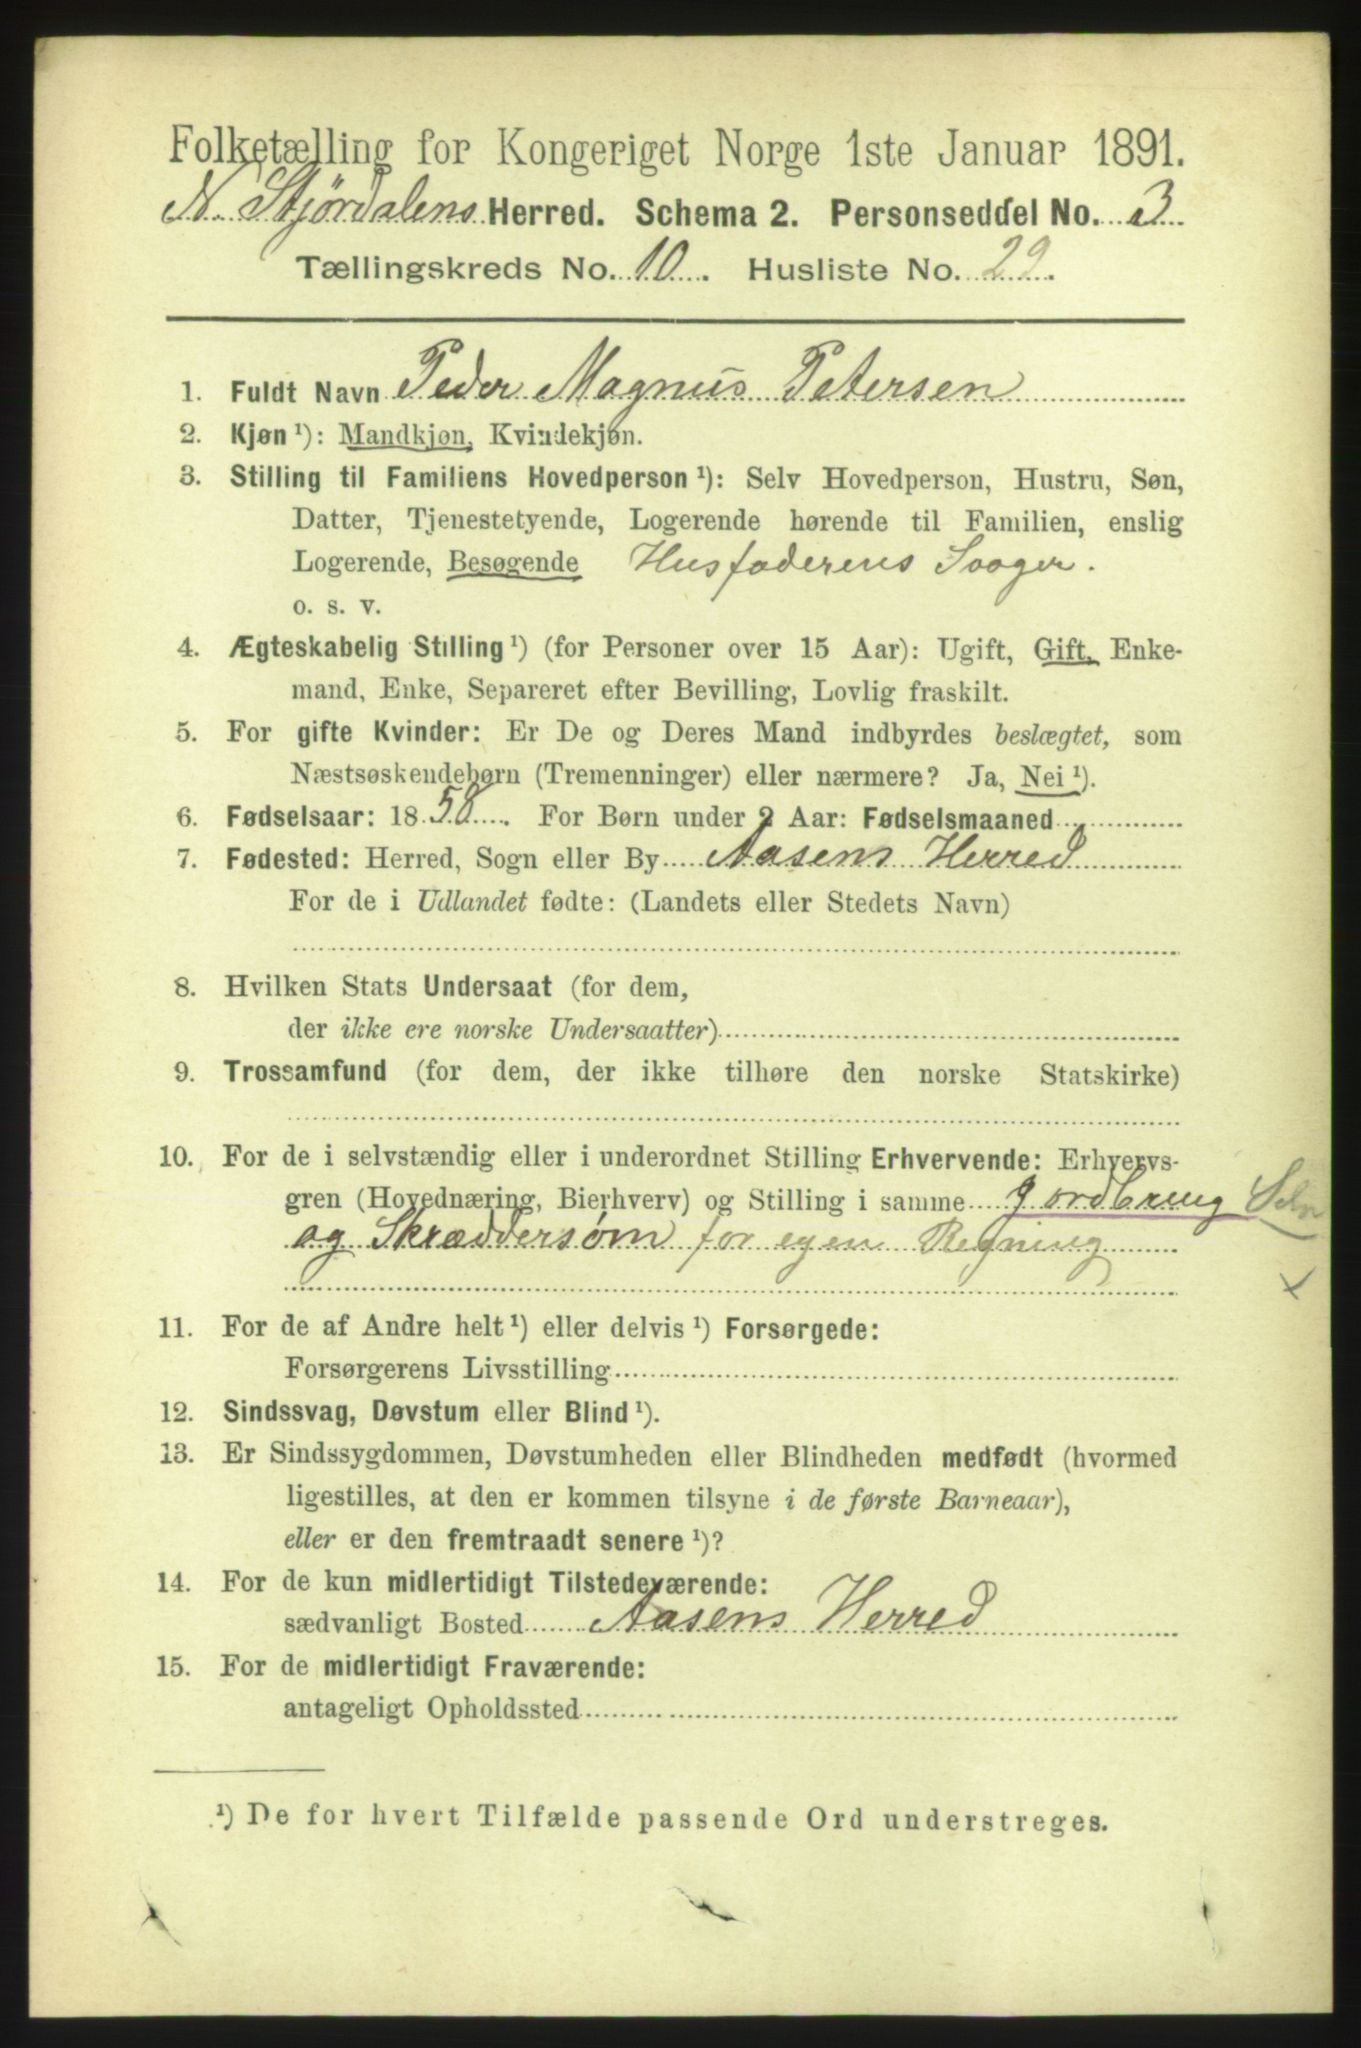 Folketælling for Kongeriget Norge 1ste Januar 1891.
N. Stjørdalens Herred. Schema 2. Personseddel No. 3
Tællingskreds No. 10. Husliste No. 29.
1. Fuldt Navn Peder Magnus Petersen
2. Kjøn ¹): Mandkjøn, Kvindekjøn.
3. Stilling til Familiens Hovedperson ¹): Selv Hovedperson, Hustru, Søn,
Datter, Tjenestetyende, Logerende hørende til Familien, enslig
Logerende, Besøgende Husfaderens Svoger.
o. s. v.
4. Ægteskabelig Stilling ¹) (for Personer over 15 Aar): Ugift, Gift, Enke-
mand, Enke, Separeret efter Bevilling, Lovlig fraskilt.
5. For gifte Kvinder: Er De og Deres Mand indbyrdes beslægtet, som
Næstsøskendebørn (Tremenninger) eller nærmere? Ja, Nei ¹).
6. Fødselsaar: 1858. For Børn under 2 Aar: Fødselsmaaned
7. Fødested: Herred, Sogn eller By Aasens Herred
For de i Udlandet fødte: (Landets eller Stedets Navn)
8. Hvilken Stats Undersaat (for dem,
der ikke ere norske Undersaatter)
9. Trossamfund (for dem, der ikke tilhøre den norske Statskirke)
10. For de i selvstændig eller i underordnet Stilling Erhvervende: Erhvervs-
gren (Hovednæring, Bierhverv) og Stilling i samme Jordbrug Selv
og Skræddersøm for egen Regning
11. For de af Andre helt ¹) eller delvis ¹) Forsørgede:
Forsørgerens Livsstilling
12. Sindssvag, Døvstum eller Blind ¹).
13. Er Sindssygdommen, Døvstumheden eller Blindheden medfødt (hvormed
ligestilles, at den er kommen tilsyne i de første Barneaar),
eller er den fremtraadt senere ¹)?
14. For de kun midlertidigt Tilstedeværende:
sædvanligt Bosted Aasens Herred
15. For de midlertidigt Fraværende:
antageligt Opholdssted
¹) De for hvert Tilfælde passende Ord understreges.